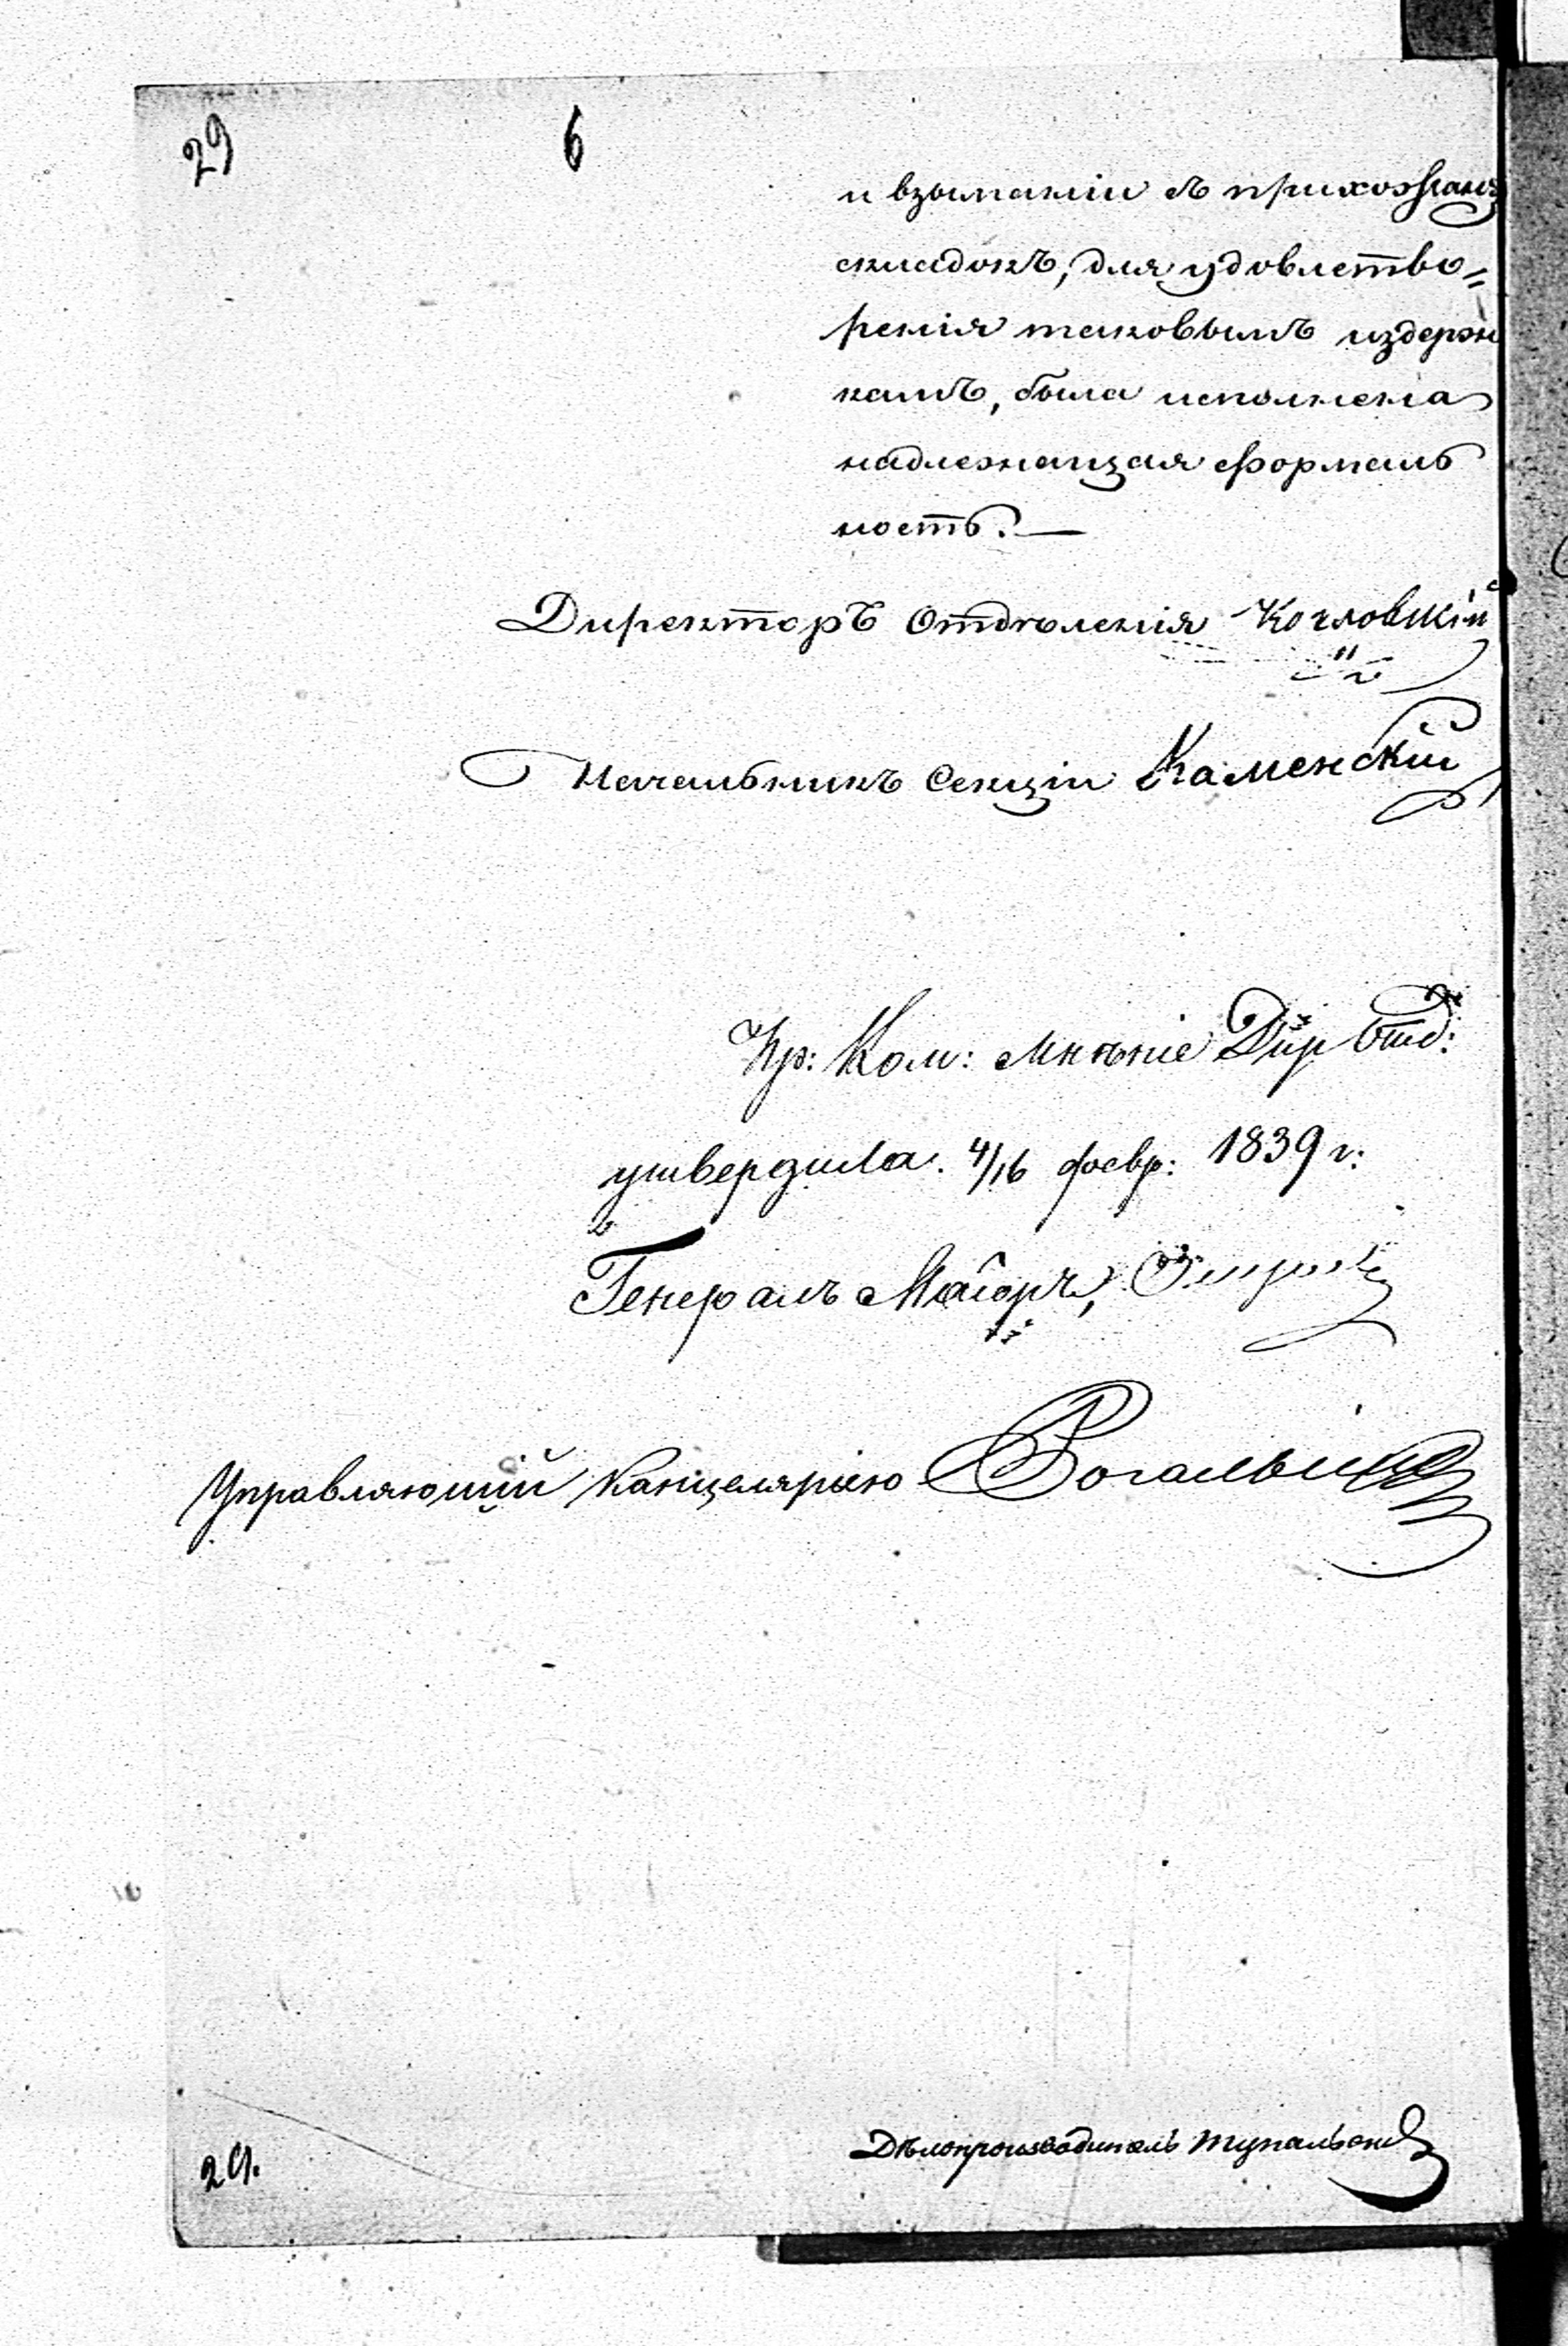 29
6
и взыманіи съ прихожанъ
складокъ, для удовлетво=
ренія таковымъ издерж
камъ, была исполнена
надлежащая формаль
ность.—
Директоръ Отдѣленія Козловскій
Начальникъ Секціи Каменскій
Пр: Ком: мнѣніе Дир Отд:
утвердила. 4/16 февр: 1839 г:
Генералъ Маіоръ,
Управляющій Канцеляріею
Дѣлопроизводитель
29.